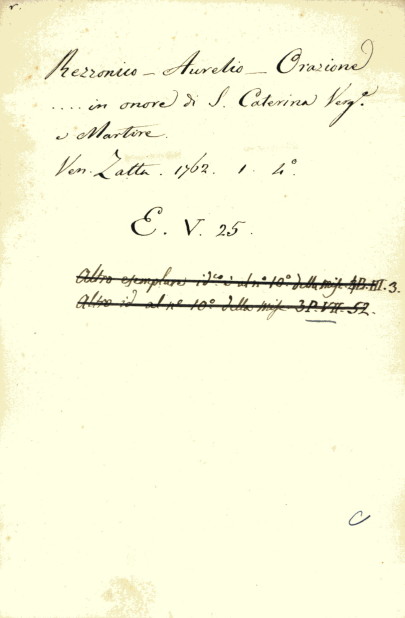 r.
Rezzonico - Aurelio - Orazione
.... in onore di S. Caterina Verg.ᵉ
e Martire.
Ven. Zatta. 1762. 1. 4°.
E. V. 25.
Altro esemplare id.ᶜᵒ è al n° 10° della misc. III. 3.
Altro id al n° 10° della misc. 3P. VII. 52.
C